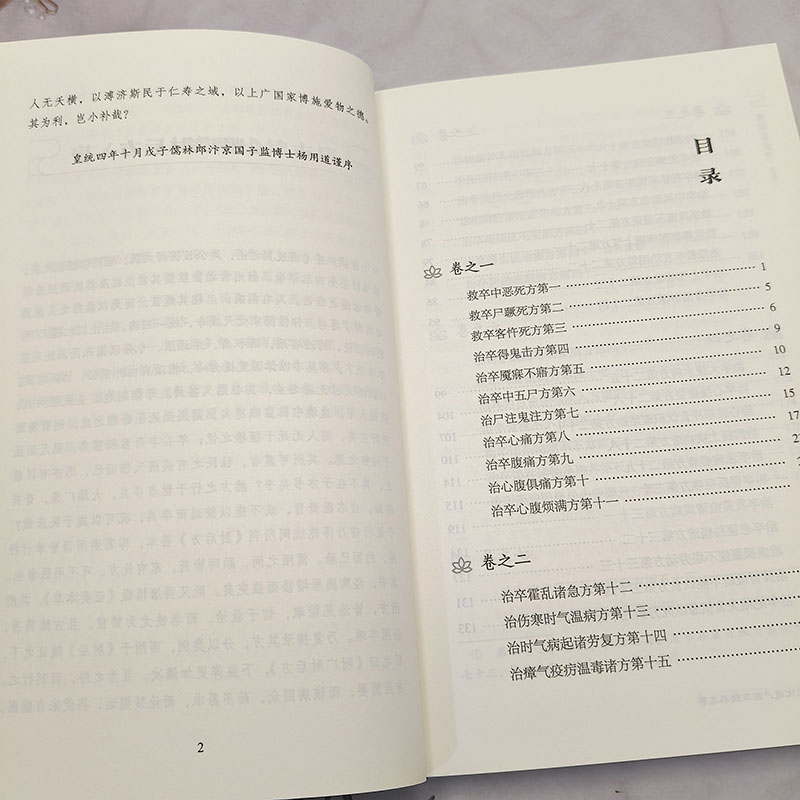 人无夭横，以溥济斯民于仁寿之域，以上广国家博施爱物之德。
其为利，岂小补哉？
皇统四年十月戊子儒林郎汴京国子监博士杨用道谨序
2
目
录
卷之一
救卒中恶死方第一 1
救卒尸蹶死方第二 5
救卒客忤死方第三 6
治卒得鬼击方第四 9
治卒魇寐不寤方第五 10
治卒中五尸方第六 12
治尸注鬼注方第七 15
治卒心痛方第八 17
治卒腹痛方第九
治心腹俱痛方第十
治卒心腹烦满方第十一
卷之二
治卒霍乱诸急方第十二
治伤寒时气温病方第十三
治时气病起诸劳复方第十四
治瘴气疫疠温毒诸方第十五